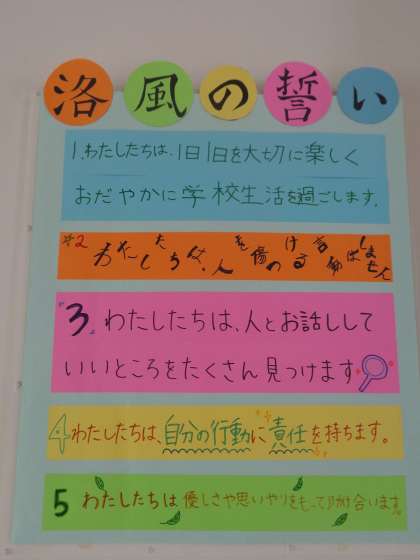 洛風の誓い
1.わたしたちは、1日1日を大切に楽しく
おだやかに学校生活を過ごします.
2 わたしたちは、人を傷つける言動はしません
3. わたしたちは、人とお話しして
いいところをたくさん見つけます
4 わたしたちは、自分の行動に責任を持ちます。
5 わたしたちは優しさや思いやりをもって助け合います。